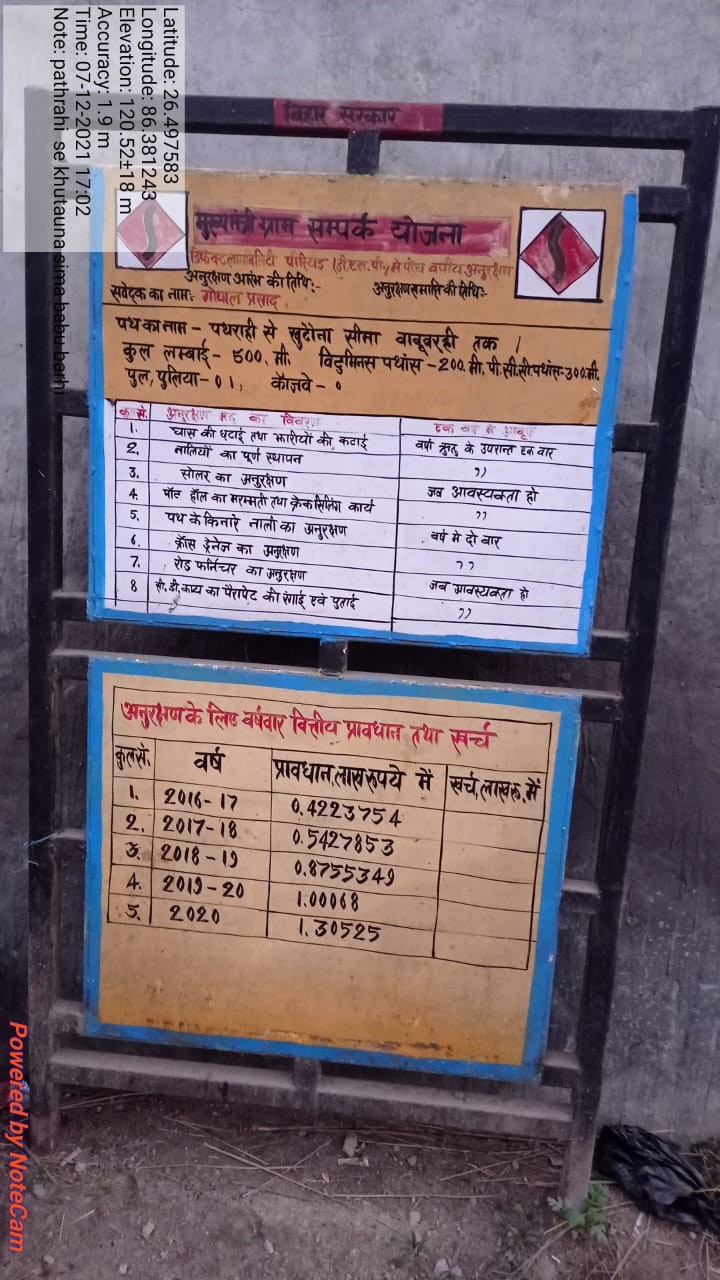 Latitude: 26.497583
Longitude: 86.381243
Elevation: 120.52±18 m
Accuracy: 1.9 m
Time: 07-12-2021 17:02
Note: pathrahi se khutauna sima babu barhi
बिहार सरकार
मुख्यमंत्री ग्राम सम्पर्क योजना
डिफेक्ट लायाबलिटी पीरियड (डी.एल.पी) मे पाँच वर्षीय अनुरक्षण
अनुरक्षण आरंभ की तिथि:- अनुरक्षण समाप्ति की तिथि:-
संवेदक का नाम:- गोपाल प्रसाद
पथ का नाम - पथराही से खुटौना सीमा बाबूबरही तक ।
कुल लम्बाई - 500. मी. विटुमिनस पथांस - 200. मी. पी.सी.सी.पथांस:-300.मी.
पुल, पुलिया - 01, कॅाजवे - ०
क्र. सं. अनुरक्षण मद का विवरण एक वर्ष मे
1. घास की छटाई तथा झारीयों की कटाई वर्षा ऋतु के उपरान्त एक वार
2. नालियों का पूर्ण स्थापन ,,
3. सोलर का अनुरक्षण जब आवस्यकता हो
4. पॉट हॉल का मरम्मती तथा क्रेक सिलिंग कार्य ,,
5. पथ के किनारे नाली का अनुरक्षण वर्ष मे दो बार
6. क्रॉस ड्रेनेज का अनुरक्षण ,,
7. रोड फर्निचर का अनुरक्षण जब आवस्यकता हो
8 सी.डी.कार्य का पैरापेट की रंगाई एवं पुताई ,,
अनुरक्षण के लिए वर्षवार वित्तीय प्रावधान तथा खर्च
कुल सं. वर्ष प्रावधान, लाख रूपये में खर्च, लाख रू. में
1. 2016-17 0.4223754
2. 2017-18 0.5427853
3. 2018-19 0.8755349
4. 2019-20 1.00068
5. 2020 1.30525
Powered by NoteCam